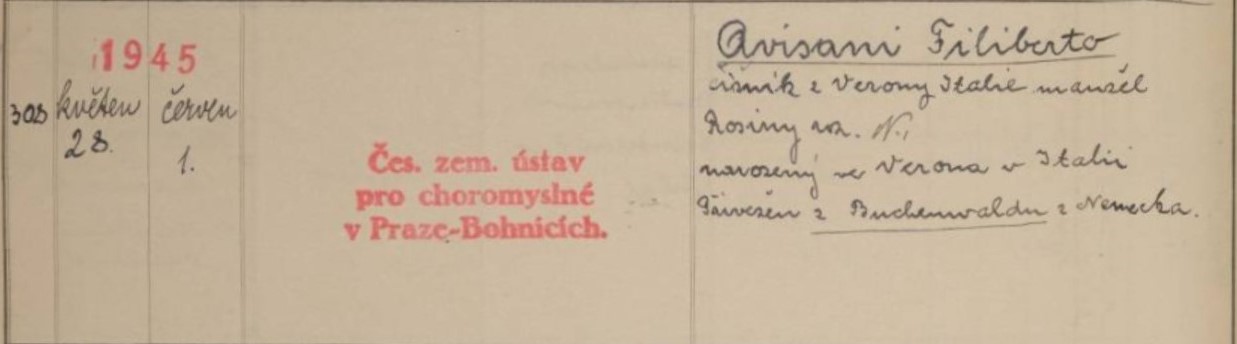 1945
308 květen 28. červen 1.
Čes. zem. ústav
pro choromyslné
v Praze-Bohnicích.
Avisani Filiberto
číšník z Verony Italie manžel
Rosiny roz. N.,
narozený ve Verona v Italii
Přivezen z Buchenwaldu z Německa.